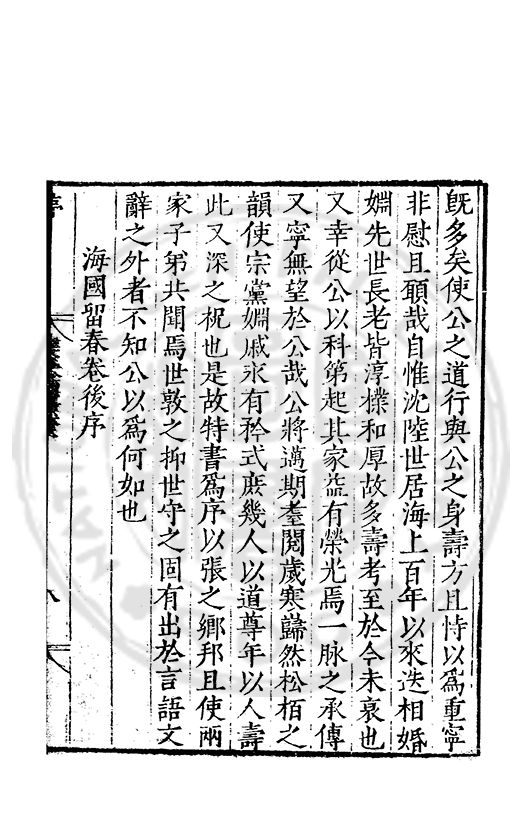 既多矣使公之道行與公之身壽方且恃以爲重寧
非慰且願哉自惟沈陸世居海上百年以來迭相婚
婣先世長老皆淳樸和厚故多壽考至於今未衰也
又幸從公以科第起其家益有榮光焉一脉之承傳
又寧無望於公哉公將邁期耋閱歲寒巋然松栢之
韻使宗黨婣戚永有矜式庶幾人以道尊年以人壽
此又深之祝也是故特書爲序以張之鄉邦且使兩
家子弟共聞焉世敦之抑世守之固有出於言語文
辭之外者不知公以爲何如也
海國留春卷後序